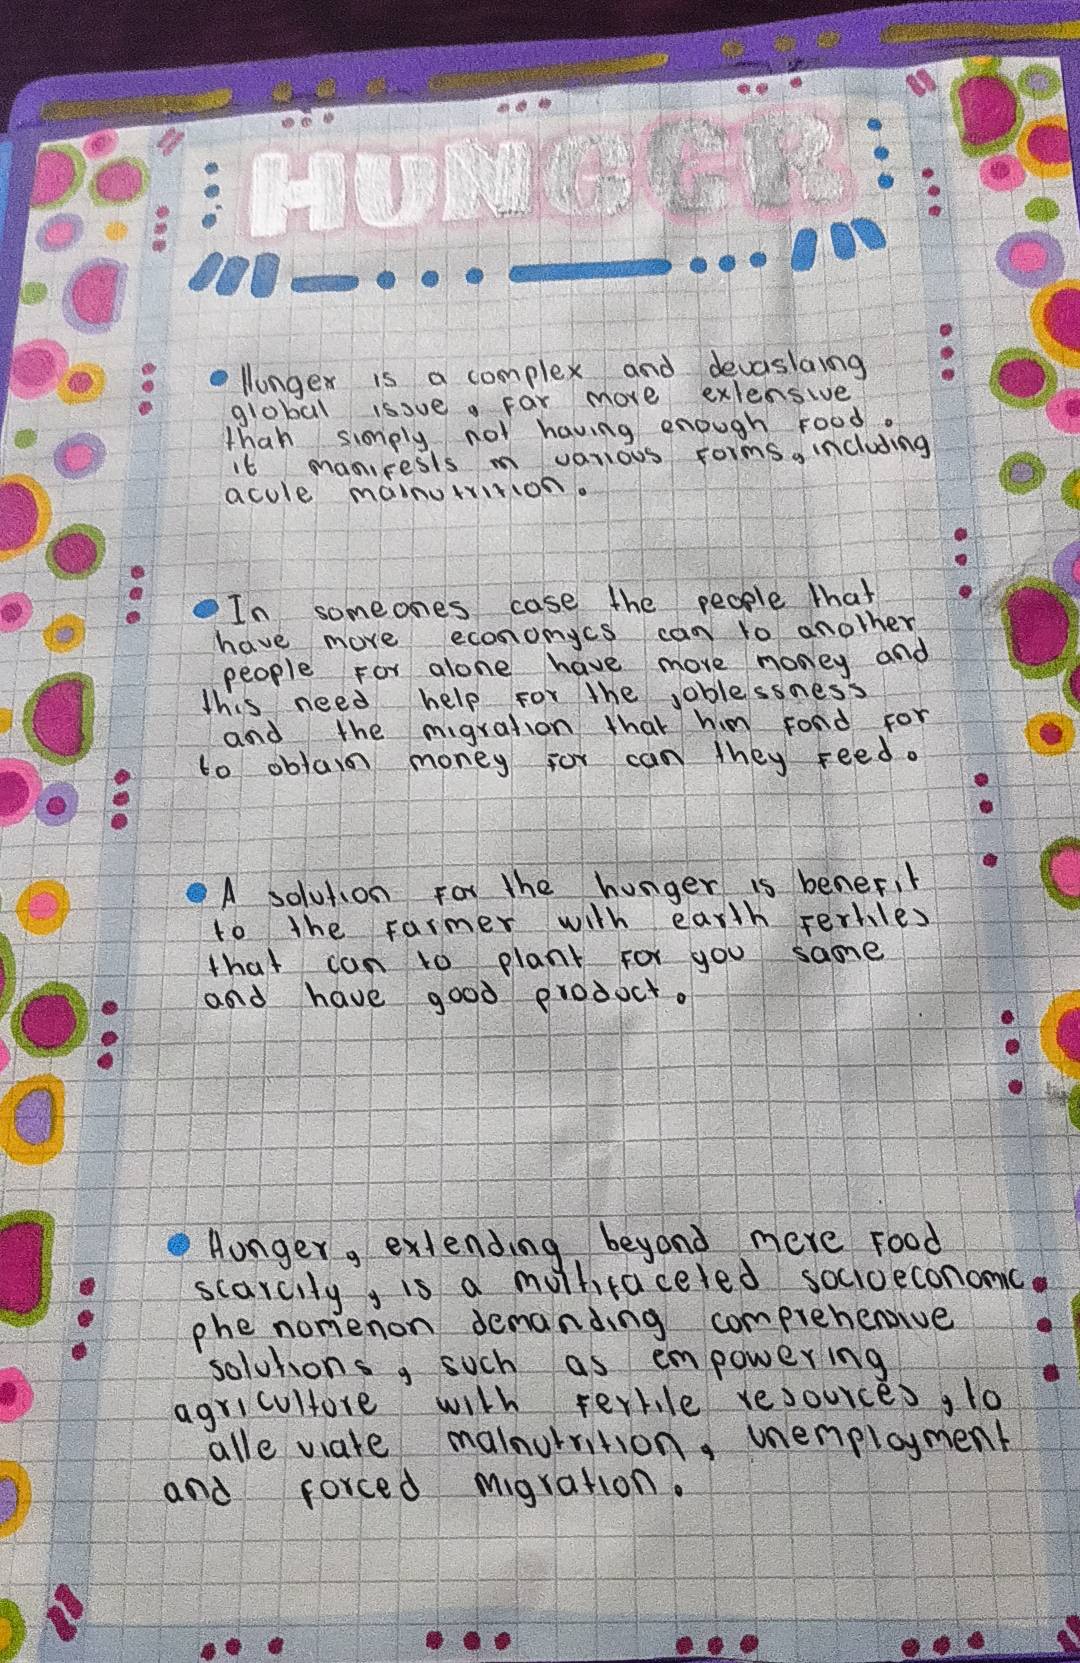 HUNGER
Hunger is a complex and devastaing
global issue, far more extensive
than simply not having enough food.
it manifests in various forms, including
acute malnutrition.
In someones case the people that
have more economycs can to another
people for alone have more money and
this need help for the joblessness
and the migration that him fond for
to obtain money for can they feed.
A solution for the hunger is benefit
to the farmer with earth fertiles
that can to plant for you same
and have good product.
Hunger, extending beyond mere food
scarcity, is a multifaceted socioeconomic
phenomenon demanding comprehensive
solutions, such as empowering
agriculture with fertile resources, to
alleviate malnutrition, unemployment
and forced migration.